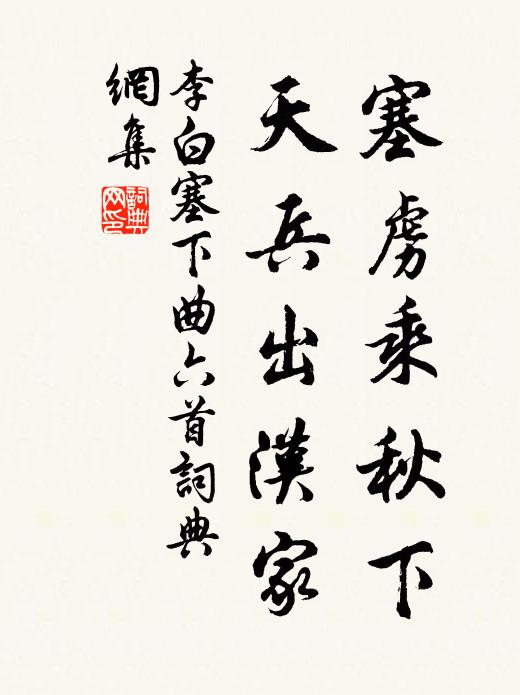 塞虜乘秋下
天兵出漢家
李白塞下曲六首詞典
網集
詞典
网印